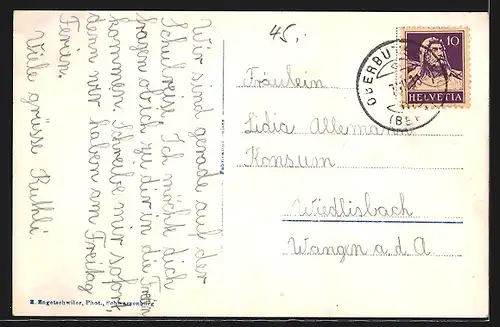 Wir sind gerade auf der
Schulreise. Ich möcht dich
fragen ob ich zu dir in die Ferien
kommen. Schreibe mir sofort,
denn wir haben am Freitag
Ferien.
Viele grüsse Ruthli
45.-
Fräulein
Lidia Allemann
Konsum
Wiedlisbach
Wangen a. d A
10
HELVETIA
OBERBU
(BE
E. Engetschwiler, Phot., Schwarzenburg